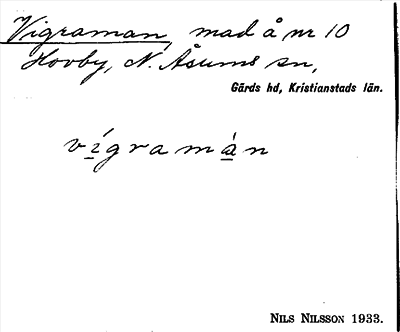 Vigraman, mad å nr 10
Hovby, N. Åsums sn,
Gärds hd, Kristianstads län.
vígramán
NILS NILSSON 1933.